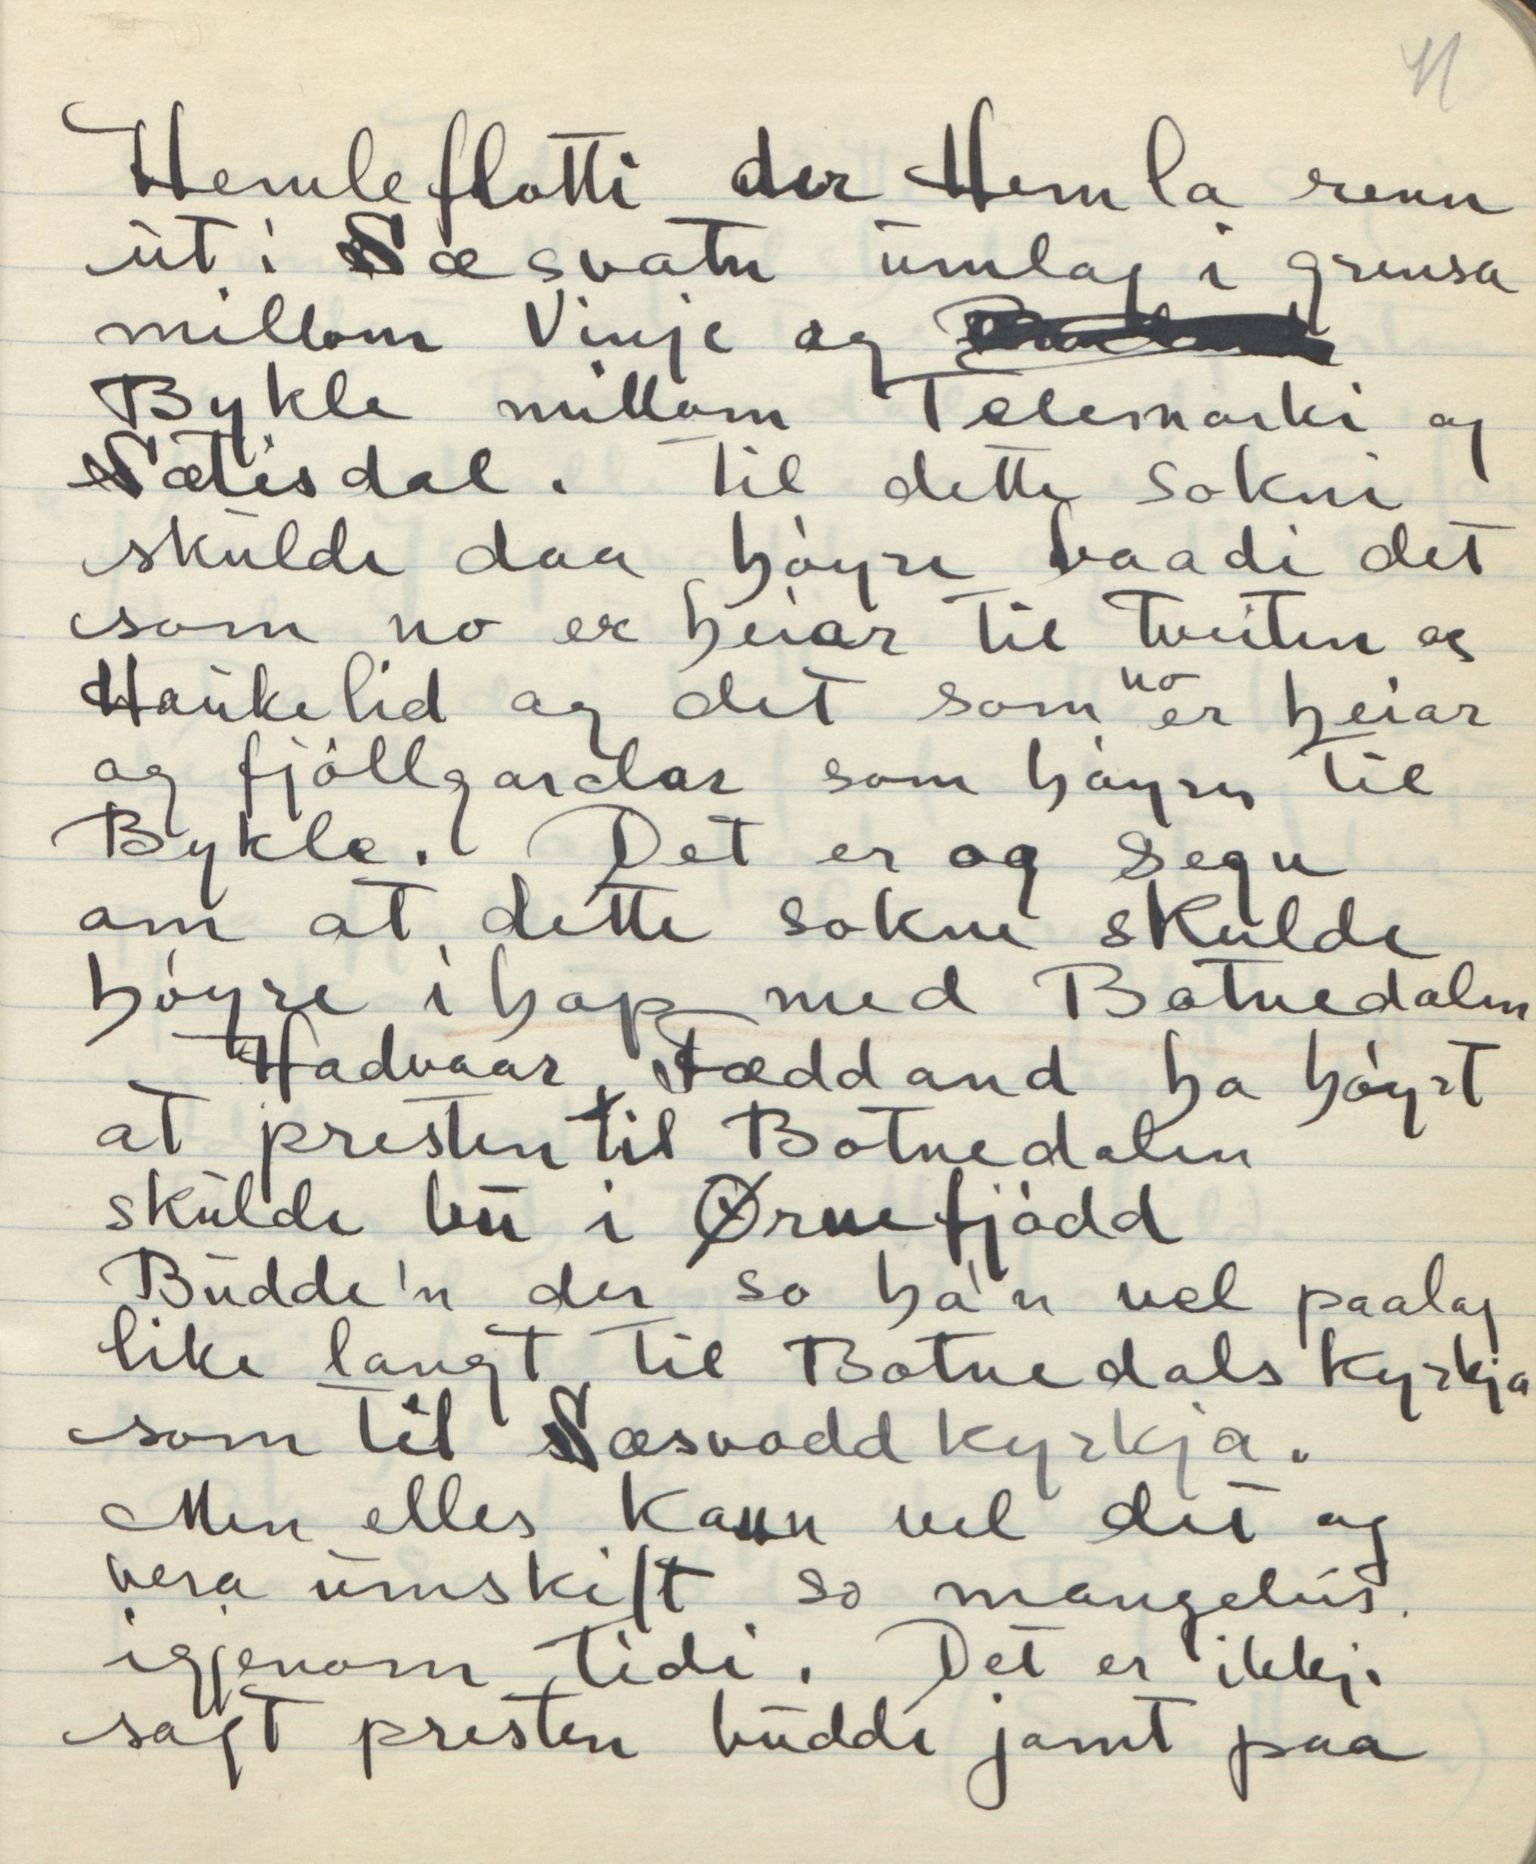 11
Hemleflotti der Hemla renn
ut i Sæsvatn umlag i grensa
millom Vinje og
Bykle millom Telemarki og
Sætisdal. Til dette sokni
skulde daa høyre baadi det
som no er heiar til Tveiten og
Haukelid og det som no er heiar
og fjøllgardar som høyrer til
Bykle. Det er og segn
om at dette sokne skulde
høyre ihop med Botnedalen
Hadvaar Fæddand ha høyrt
at presten til Botnedalen
skulde bu i Ørnefjødd
Budde'n der so ha'n vel paalag
like langt til Botnedals kyrkja
som til Sæsvodd kyrkja.
Men elles kann vel det og
vera umskift so mangeleis
igjenom tidi. Det er ikkje
sagt presten buddi jamt paa